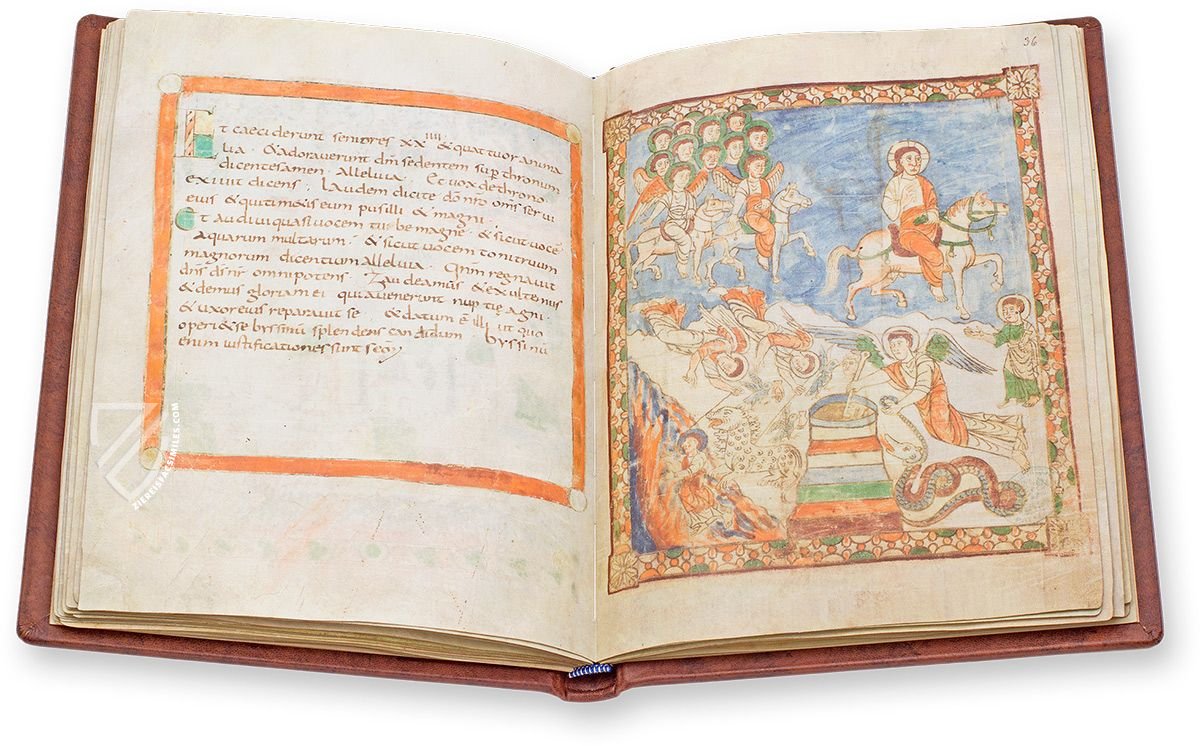 Et caeciderunt seniores xx iiii & quattuor anima
lia · & adoraverunt dm̄ sedentem sup thronum
dicentes amen · Alleluia · Et vox de throno
exivit dicens · Laudem dicite dō nr̄o om̄s servi
eius & qui timetis eum pusilli & magni ·
Et audivi quasi vocem tube magnę · & sicut vocē
aquarum multarum · & sicut vocem tonitruum
magnorum dicentium alleluia · Qnm̄ regnavit
dn̄s dś nr̄ omnipotens · Gaudeamus & exultemus
& demus gloriam ei quia venerunt nuptię agni ·
& uxor eius preparavit se & datum ē illi ut quo
operi& se byssinū splendens candidum byssinū
enim iustificationes sunt scōꝝ
36
ZIEREISFACSIMILES.COM